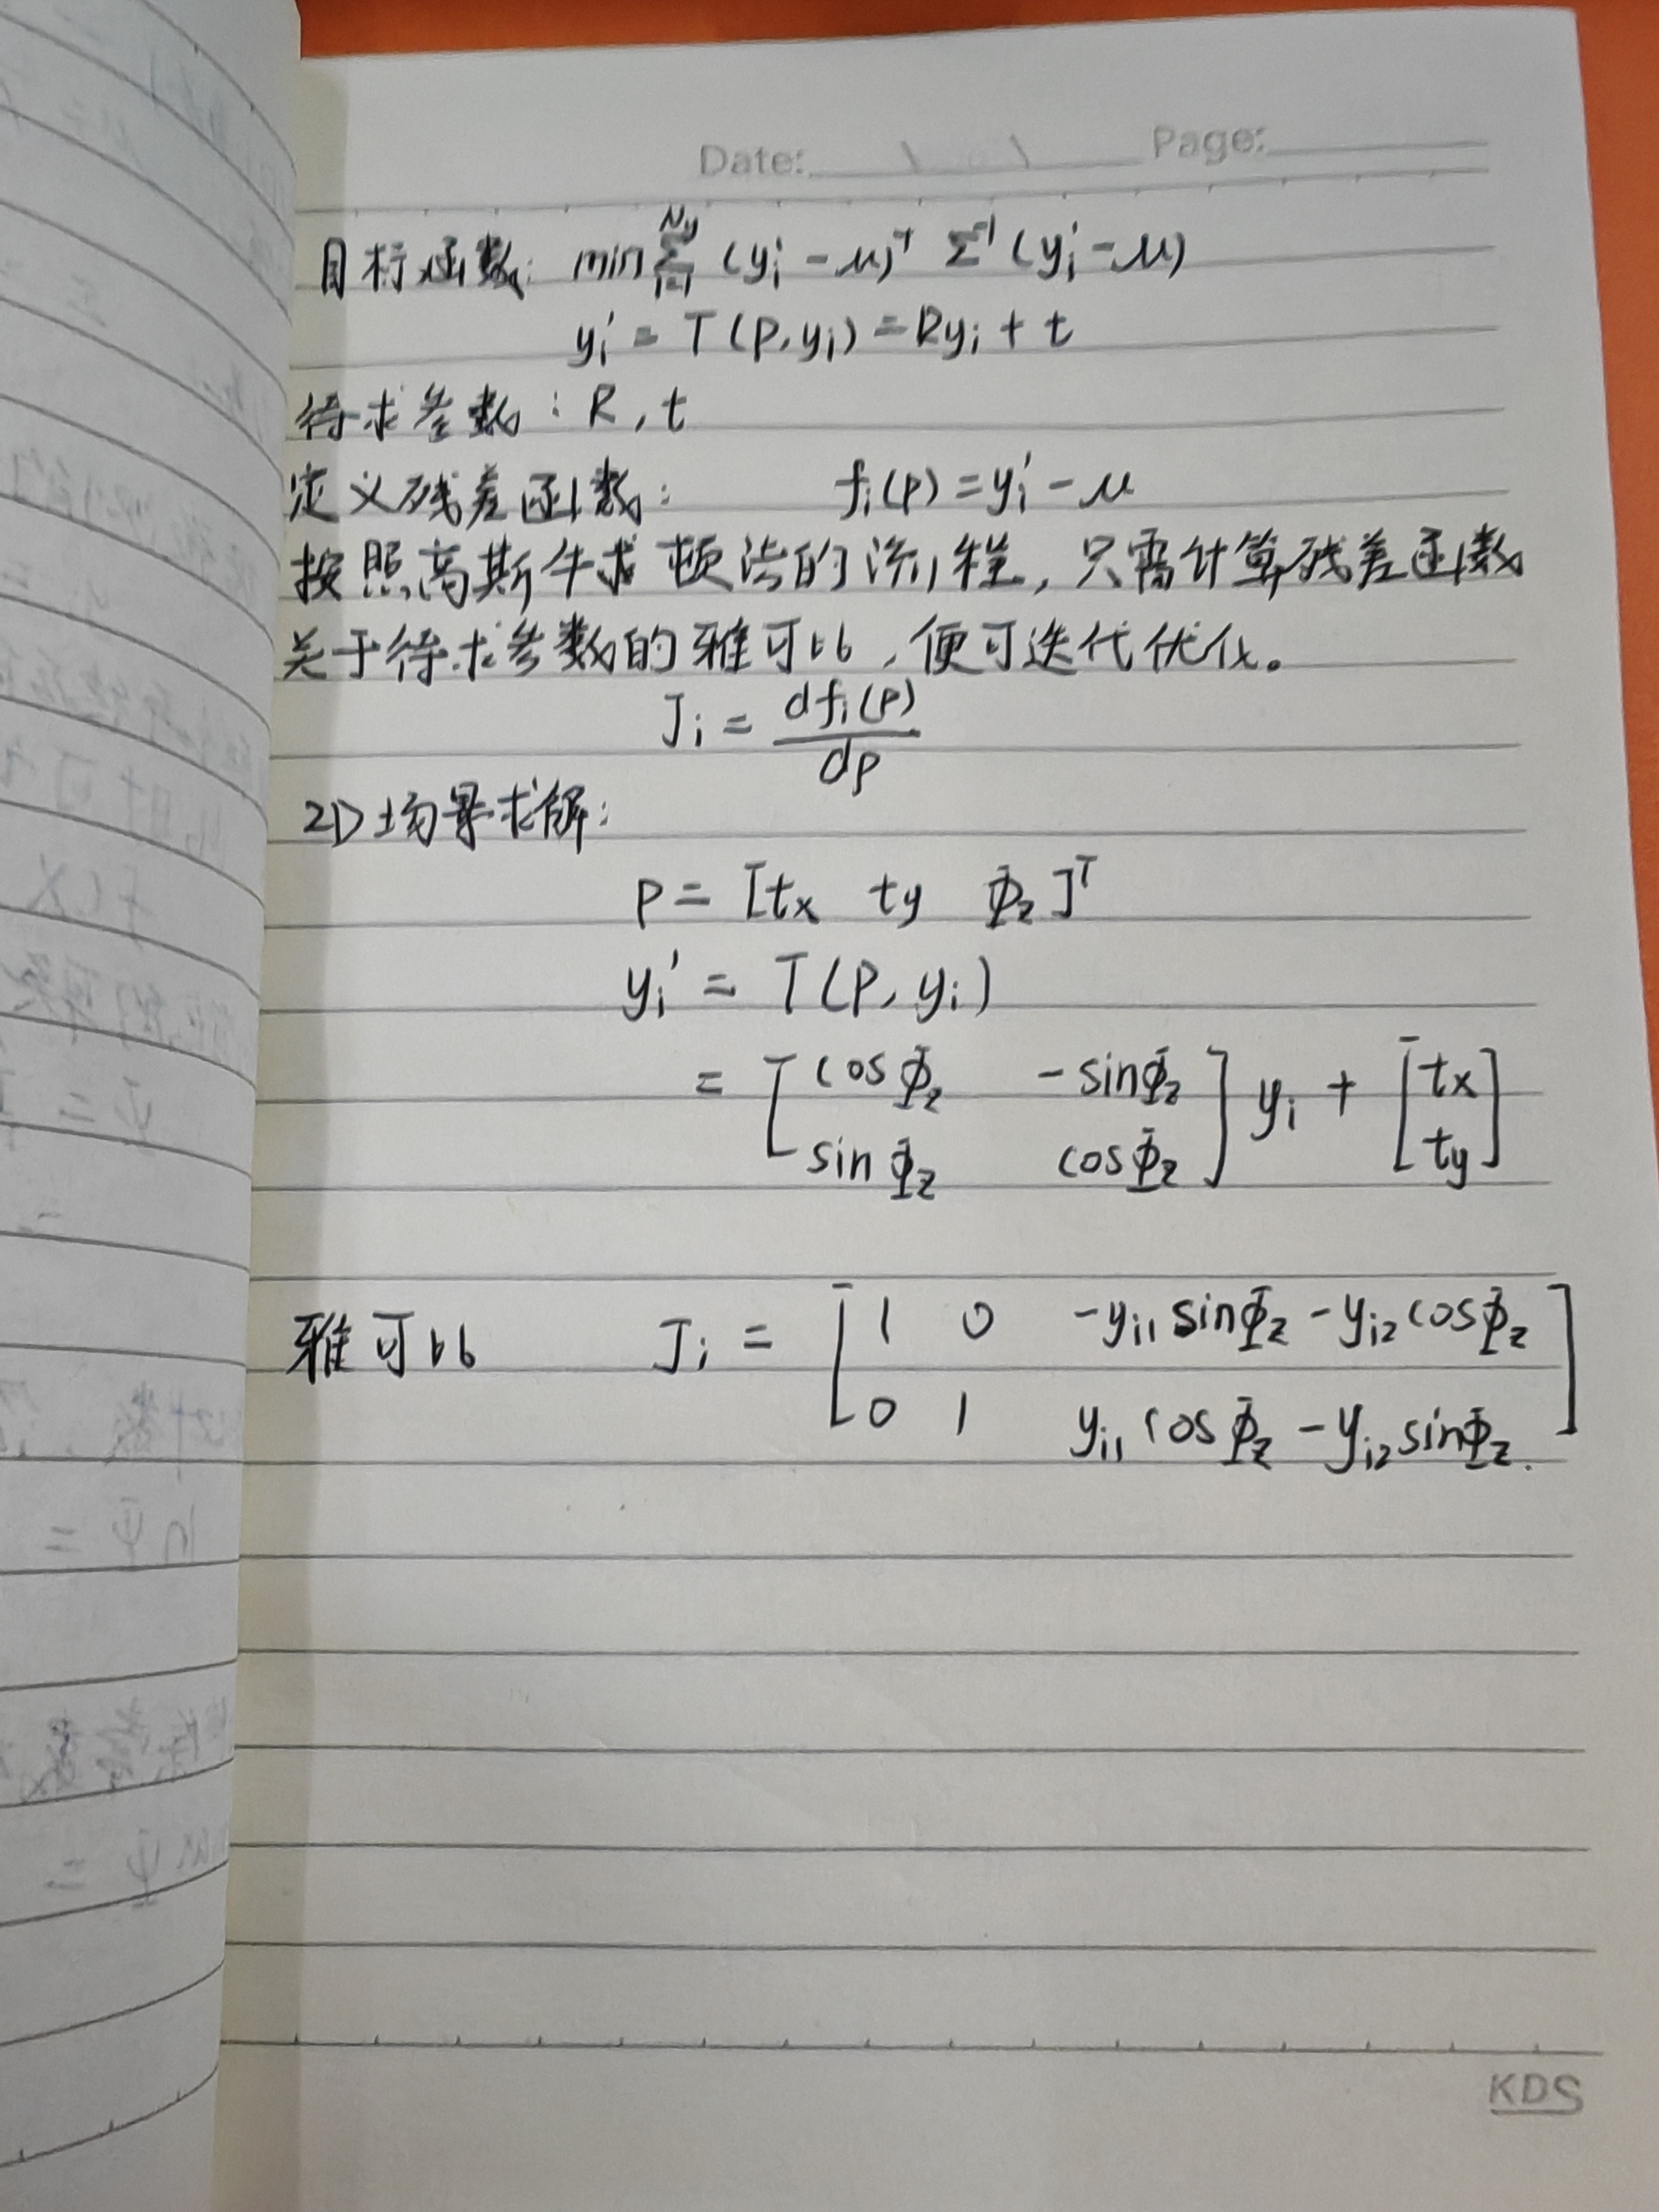 Date: \ \ Page:
目标函数: min Σ_{i=1}^{Ny} (yi' - μ)^T Σ^-1 (yi' - μ)
yi' = T(p, yi) = Ryi + t
待求参数: R, t
定义残差函数: fi(p) = yi' - μ
按照高斯牛求顿法的流程, 只需计算残差函数
关于待求参数的雅可比, 便可迭代优化。
Ji = dfi(p) / dp
2D场景求解:
p = [tx ty Φz]^T
yi' = T(p, yi)
= [cosΦz -sinΦz; sinΦz cosΦz] yi + [tx; ty]
雅可比 Ji = [1 0 -yi1 sinΦz - yi2 cosΦz; 0 1 yi1 cosΦz - yi2 sinΦz.]
KDS